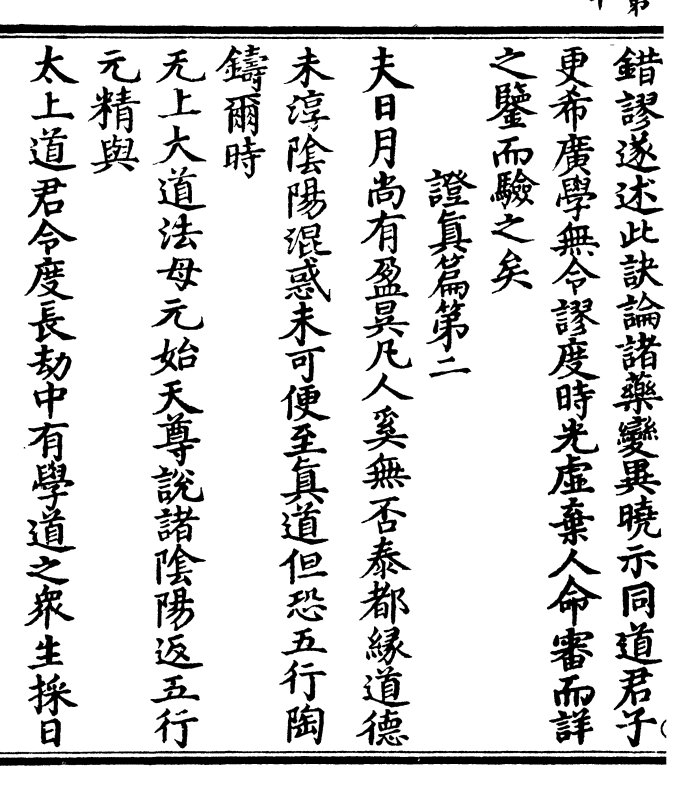 錯謬遂述此訣論諸藥變異曉示同道君子
更希廣學無令謬度時光虛棄人命審而詳
之鑒而驗之矣
證眞篇第二
夫日月尚有盈昃凡人奚無否泰都緣道德
未淳陰陽混惑未可便至眞道但恐五行陶
鑄爾時
无上大道法母元始天尊說諸陰陽返五行
元精與
太上道君令度長劫中有學道之衆生採日